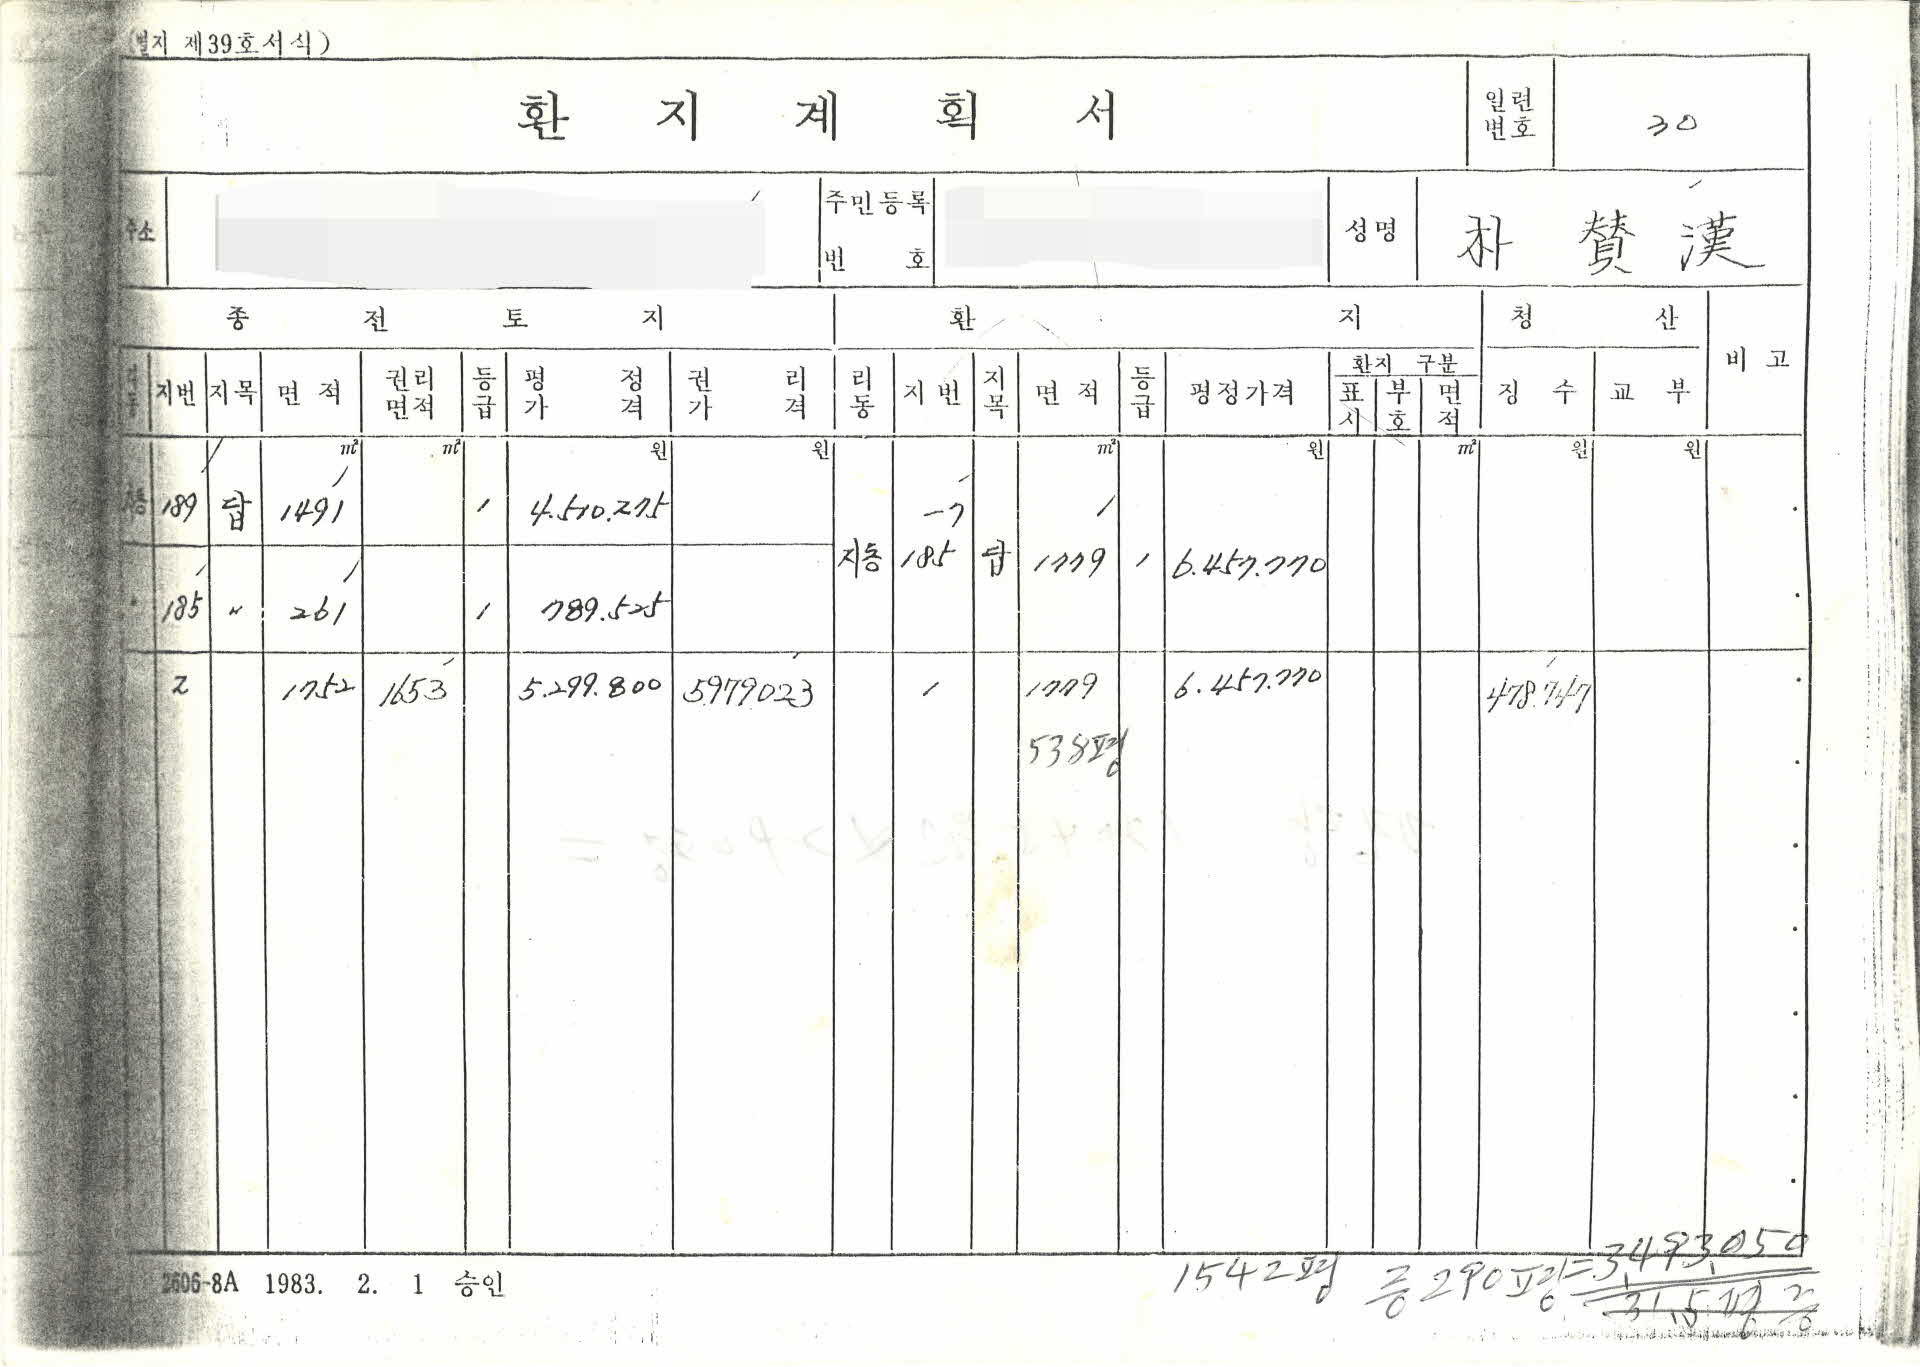 (별지 제39호서식)
환 지 계 획 서
일련번호 30
주소
주민등록번호
성명 朴 贊 漢
종 전 토 지 환 지 청 산 비 고
리동 지번 지목 면적 권리면적 등급 평정가격 권리가격 리동 지번 지목 면적 등급 평정가격 환지 구분 표시 부호 면적 징 수 교 부
㎡ ㎡ 원 원 ㎡ 원 ㎡ 원 원
189 답 1491 1 4.510.275
-7
지동 185 답 1779 1 6.457.770
185 〃 261 1 789.525
2 1752 1653 5.299.800 5979023 1 1779 6.457.770 478.747
538평
2606-8A 1983. 2. 1 승인
1542평 증290평=3,493,050
31.5평 증